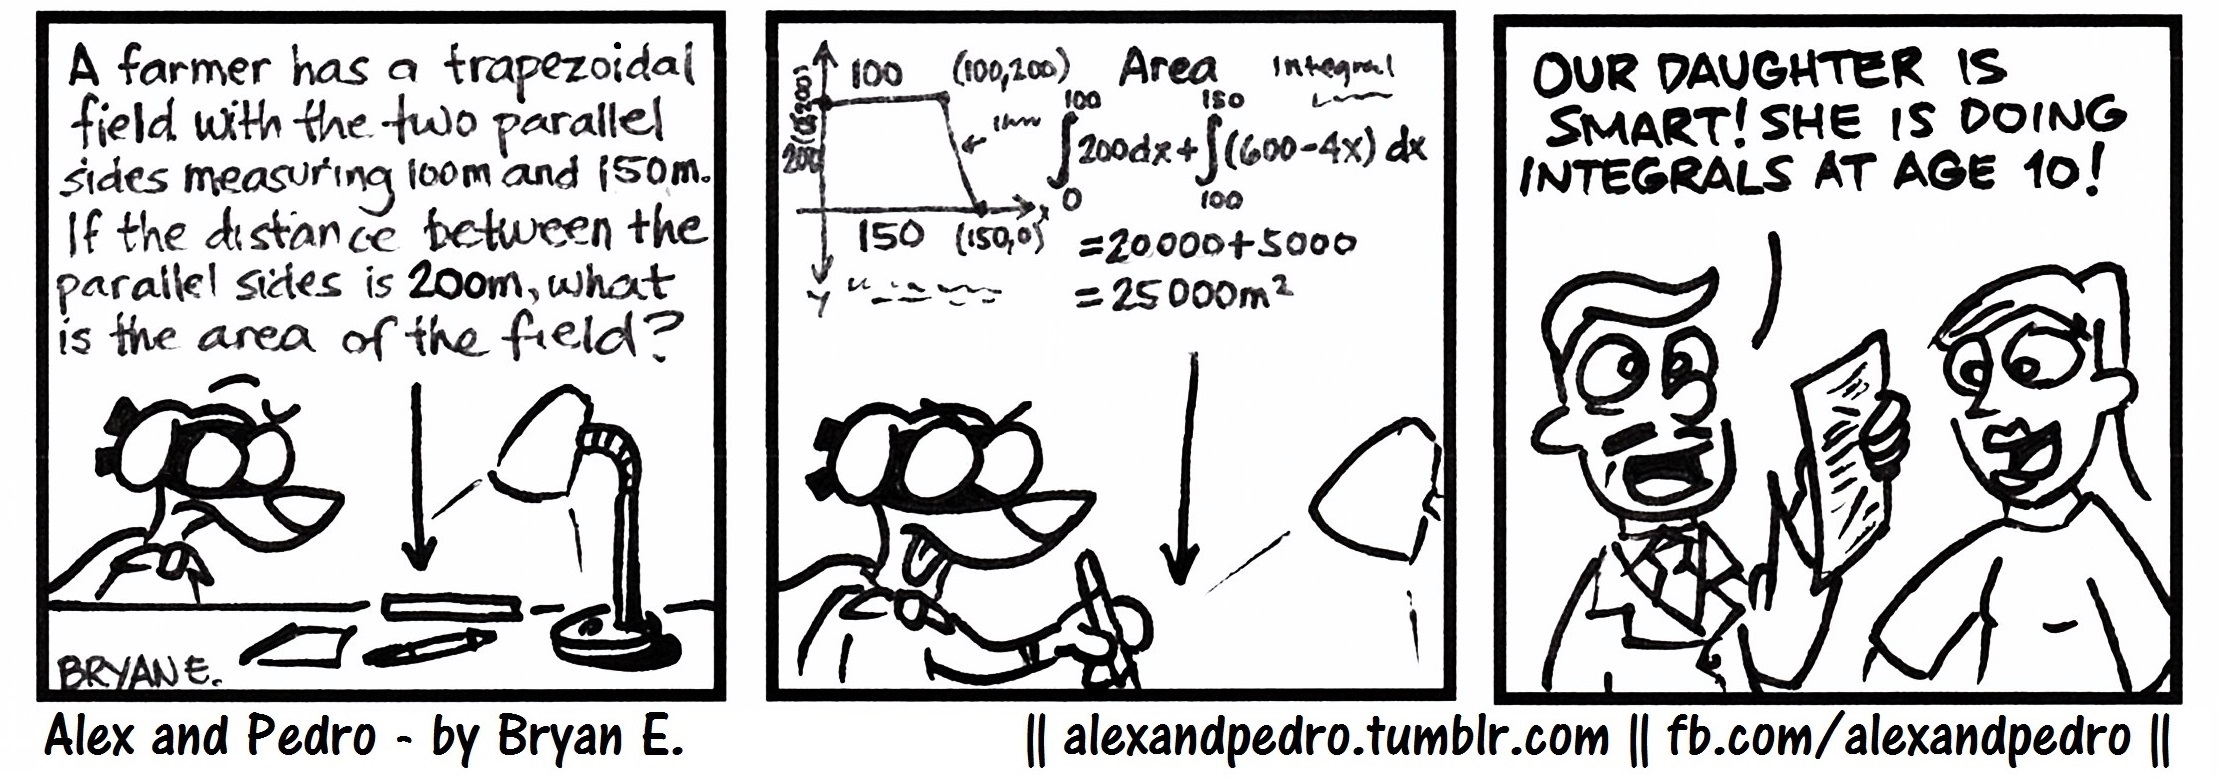 A farmer has a trapezoidal
field with the two parallel
sides measuring 100m and 150m.
If the distance between the
parallel sides is 200m, what
is the area of the field?
BRYAN E.
100 (100,200)
200
150 (150,0)
x
y
Area Integral
100 150
∫200dx+∫(600-4x) dx
0 100
=20000+5000
=25000m²
OUR DAUGHTER IS
SMART! SHE IS DOING
INTEGRALS AT AGE 10!
Alex and Pedro - by Bryan E. || alexandpedro.tumblr.com || fb.com/alexandpedro ||